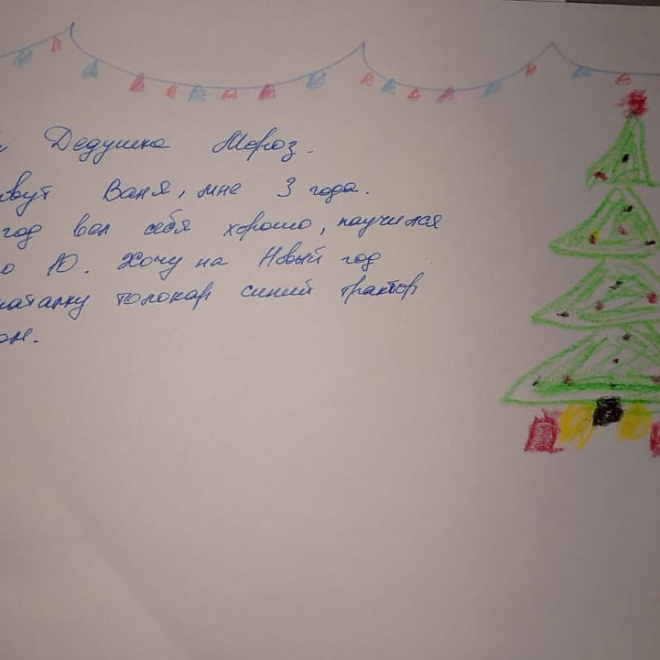 Дедушка Мороз.
Ваня, мне 3 года.
год вел себя хорошо, научился
о 10. Хочу на Новый год
каталку толокар синий трактор